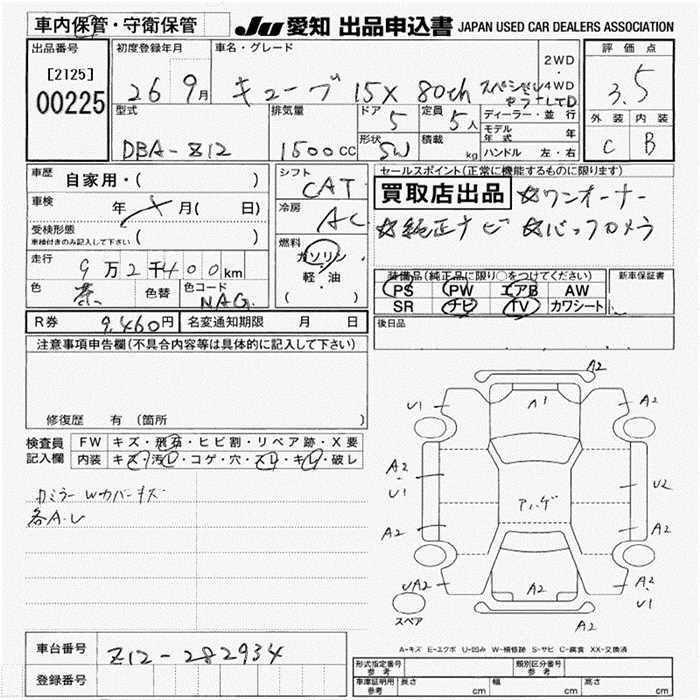 車内保管・守衛保管
JU 愛知 出品申込書 JAPAN USED CAR DEALERS ASSOCIATION
出品番号
[2125]
00225
初度登録年月
26 9月
車名・グレード
キューブ 15X 80th スペシャル
2WD
4WD
LTD
評価点
3.5
外装 内装
C B
型式
DBA-Z12
排気量
1500cc
ドア
5
定員
5人
形状
SW
積載
kg
ディーラー・並行
モデル年式 年
ハンドル 左・右
車歴
自家用・( )
車検
年 月( 日)
受検形態
車検付きのみ記入して下さい ( )
走行
9万2千400km
色
茶
色替
色コード
NAG
シフト
CAT
冷房
AC
燃料
ガソリン
軽・油
( )
セールスポイント(正常に機能するものに限ります)
買取店出品 ☆ワンオーナー
☆純正ナビ ☆バックカメラ
装備品(純正品に限り○をつけてください)
PS PW エアB AW
SR ナビ TV カワシート
新車保証書
後日品
R券 9,460円
名変通知期限 月 日
注意事項申告欄(不具合内容等は具体的に記入して下さい)
修復歴 有 (箇所 )
検査員記入欄
FW キズ・飛石・ヒビ割・リペア跡・X要
内装 キズ・汚レ・コゲ・穴・スレ・キレ・破レ
カミラーWカバーキズ
各A.U
A2
U1
A1
A2
A2
U1
アハゲ
U2
A2
A2
UA2
A2
A2
U1
A2
スペア
A-キズ E-エクボ U-凹み W-補修跡 S-サビ C-腐食 XX-交換済
車台番号
Z12-282934
登録番号
形式指定番号
参考
類別区分番号
参考
車庫証明用
参考
長さ cm
幅 cm
高さ cm